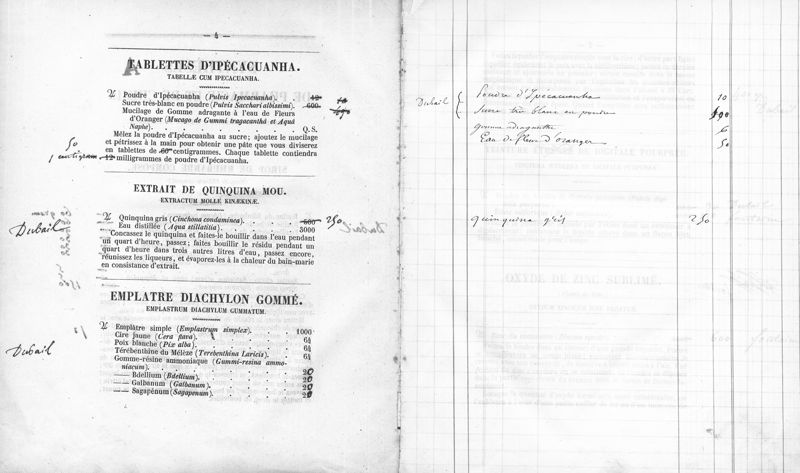 — 4 —
TABLETTES D'IPÉCACUANHA.
TABELLÆ CUM IPECACUANHA.
Poudre d'Ipécacuanha (Pulvis Ipecacuanha). 12 10
Sucre très-blanc en poudre (Pulvis Sacchari albissimi). 600 490
Mucilage de Gomme adragante à l'eau de Fleurs
d'Oranger (Mucago de Gummi tragacantha et Aquâ
Naphe). Q.S.
Mêlez la poudre d'Ipécacuanha au sucre; ajoutez le mucilage
et pétrissez à la main pour obtenir une pâte que vous diviserez
50 en tablettes de 60 centigrammes. Chaque tablette contiendra
1 centigram 12 milligrammes de poudre d'Ipécacuanha.
EXTRAIT DE QUINQUINA MOU.
EXTRACTUM MOLLE KINÆKINÆ.
Quinquina gris (Cinchona condaminea). 500 250
Dubail
Eau distillée (Aqua stillatitia) 3000
Concassez le quinquina et faites-le bouillir dans l'eau pendant
un quart d'heure, passez; faites bouillir le résidu pendant un
quart d'heure dans trois autres litres d'eau, passez encore,
réunissez les liqueurs, et évaporez-les à la chaleur du bain-marie
en consistance d'extrait.
EMPLATRE DIACHYLON GOMMÉ.
EMPLASTRUM DIACHYLUM GUMMATUM.
Emplâtre simple (Emplastrum simplex). 1000
Cire jaune (Cera flava). 64
Poix blanche (Pix alba). 64
Dubail
Térébenthine du Mélèze (Terebenthina Laricis). 64
Gomme-résine ammoniaque (Gummi-resina ammo-
niacum). 20
—— Bdellium (Bdellium). 20
—— Galbanum (Galbanum). 20
—— Sagapénum (Sagapenum). 20
Dubail
Poudre d'Ipécacuanha 10
Sucre très blanc en poudre 490
gomme adragante
Eau de fleur d'oranger 50
quinquina gris 250